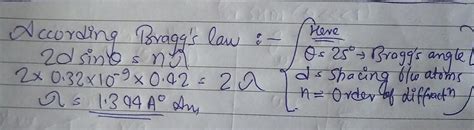 According Bragg's law :-
2d sinθ = nλ
2 × 0.32×10⁻⁹ × 0.42 = 2 λ
λ = 1.344A° Ans
Here
θ = 25° → Bragg's angle
d = spacing b/w atoms
n = Order of diffractⁿ